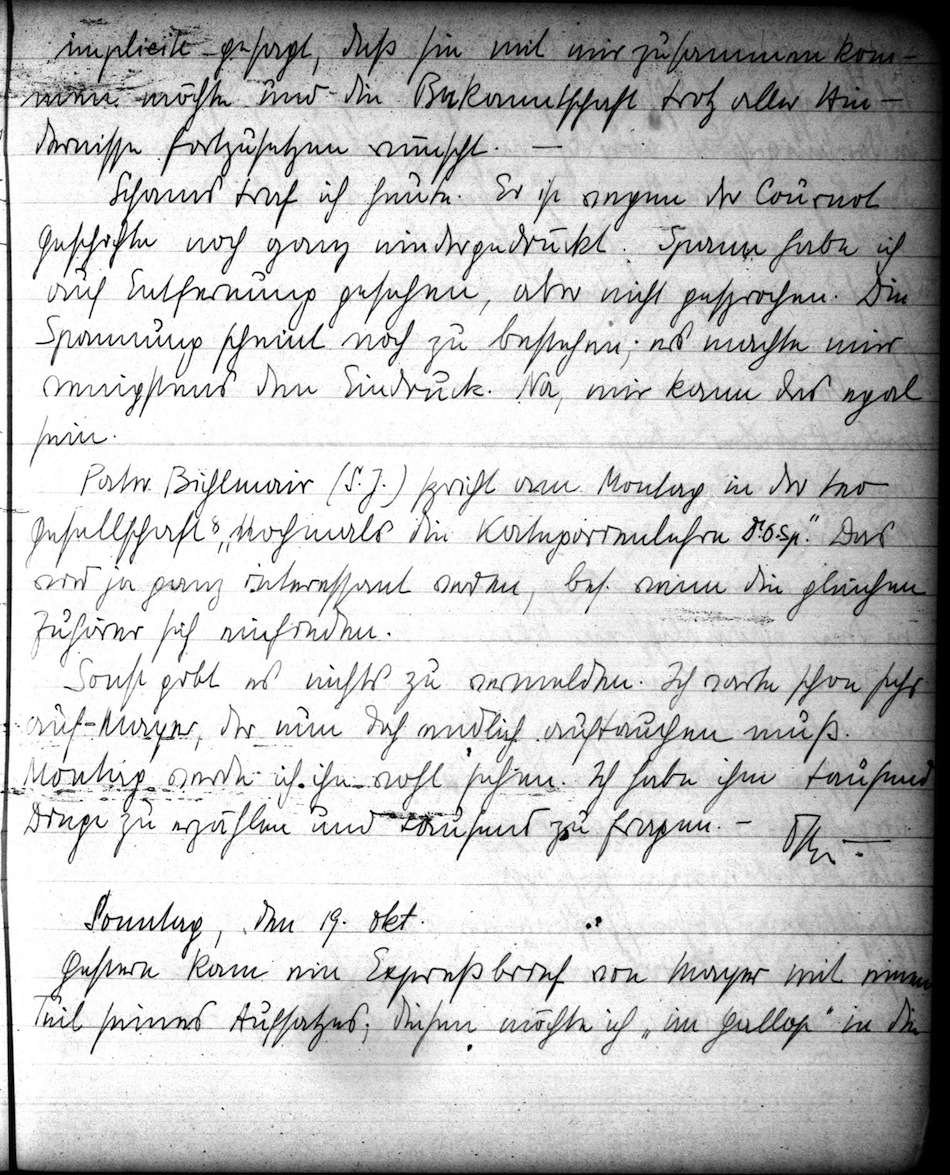 implicite gesagt, daß sie mit mir zusammen kom-
men möchte und die Bekanntschaft trotz aller Hin-
dernisse fortzusetzen wünscht. —
Schams traf ich heute. Er ist wegen der Cournot
Geschichte noch ganz niedergedrückt. Spann habe ich
auf Entfernung gesehen, aber nicht gesprochen. Die
Spannung scheint noch zu bestehen; es machte mir
wenigstens den Eindruck. Na, mir kann das egal
sein.
Pater Bichlmair (S.J.) spricht am Montag in der Leo
Gesellschaft „Nochmals die Kategorienlehre O. Sp." Das
wird ja ganz interessant werden, bes. wenn die gleichen
Zuhörer sich einfinden.
Sonst gibt es nichts zu vermelden. Ich warte schon sehr
auf Mayer, der nun doch endlich auftauchen muß.
Montag werde ich ihn wohl sehen. Ich habe ihm tausend
Dinge zu erzählen und tausend zu fragen. —
Sonntag, den 19. Okt.
Gestern kam ein Expreßbrief von Mayer mit einem
Teil seines Aufsatzes; diesen möchte ich „im Gallop" in die